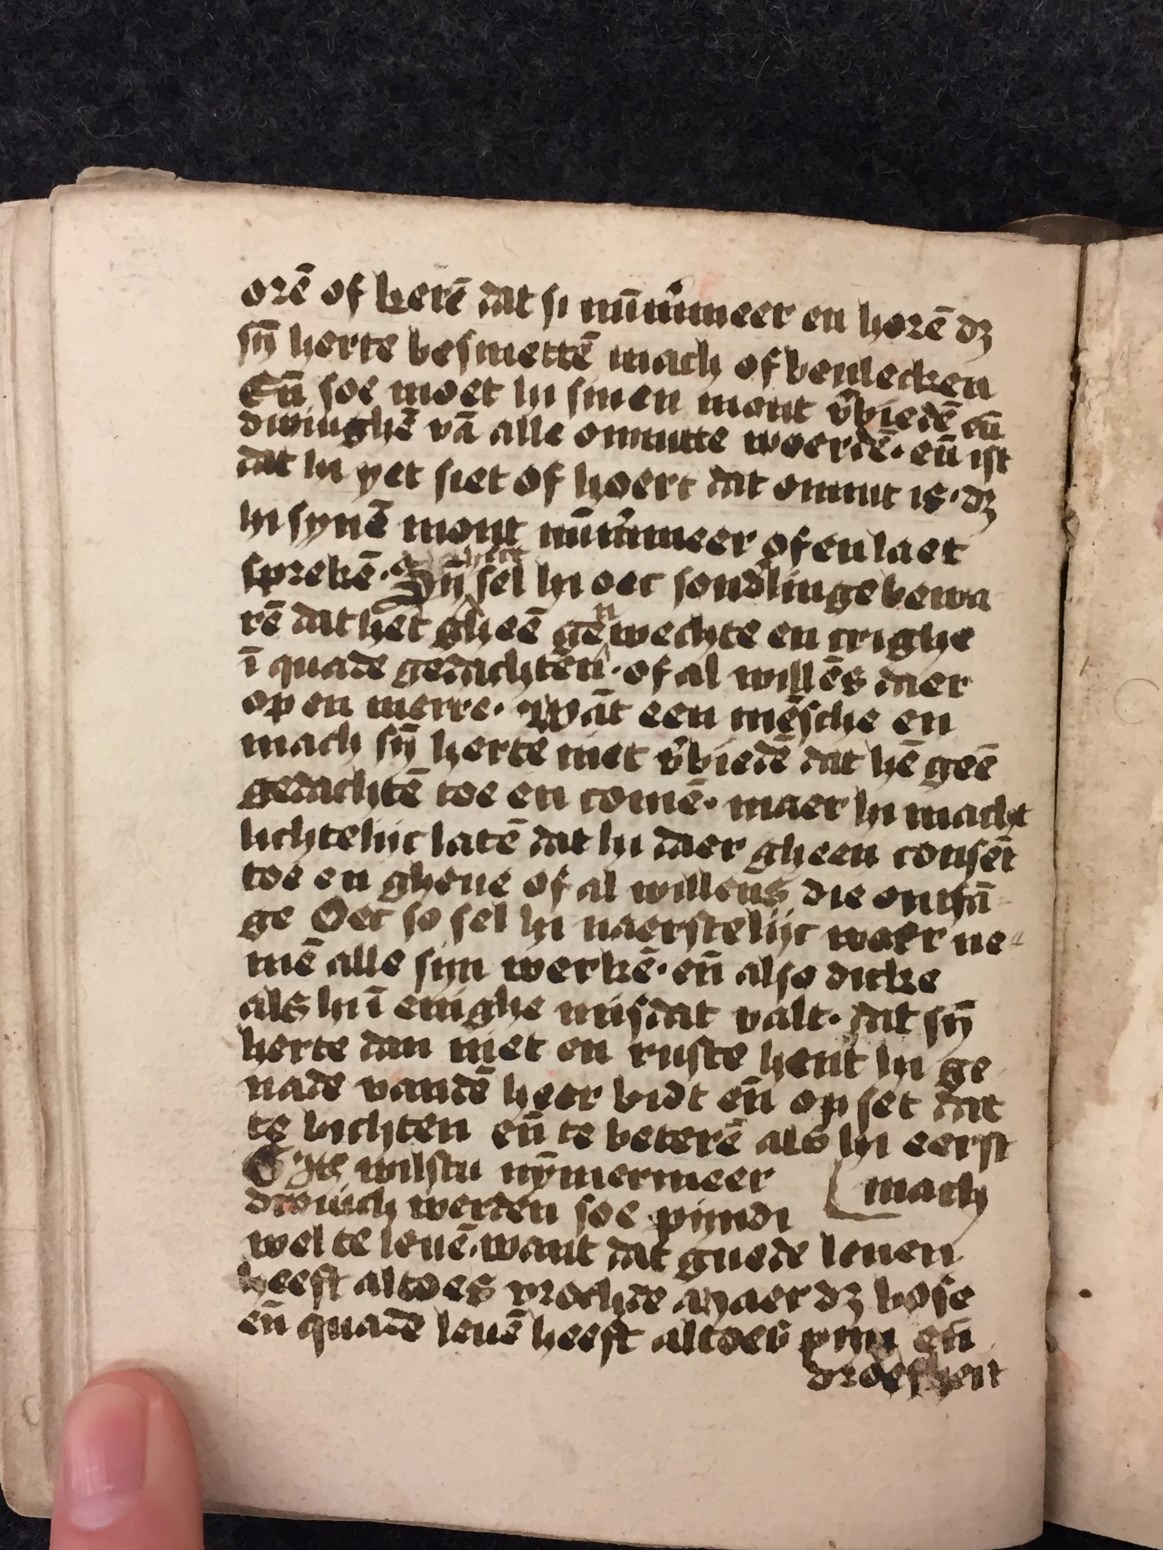 orē of kerē dat si nūm̄meer en horē dꝫ
sȳ herte besmettē mach of bevlecken
Eñ soe moet hi sinen mont v̄biedē eñ
dwinghē vā alle onnutte woerdē · eñ ist
dat hi yet siet of hoert dat onnut is · dꝫ
hi synē mont nūm̄meer of en laet
sprekē · sel hi oec sond̄linge bewa
rē dat het gheē genwechte en crighe
ī quade gedachten · of al willēs daer
op en merre · Wāt een mēsche en
mach sȳ herte niet v̄biedē dat hē geē
gedachtē toe en comē · maer hi macht
lichtelijc latē dat hi daer gheen consēt
toe en gheue of al willens die ontfā
ge Oec so sel hi naerstelijc waer ne
mē alle sijn werkē · eñ also dicke
als hi ī enighe misdat valt · dat sȳ
herte dan niet en ruste hent hi ge
nade vandē heer bidt eñ op set dat
te bichten eñ te beterē als hi eerst
mach
wilstu nȳmermeer
drouich werden soe pijndi
wel te leuē · want dat guede leuen
heeft altoes vrochde maer dꝫ bose
eñ quade leuē heeft altoes pijn eñ
droefheit